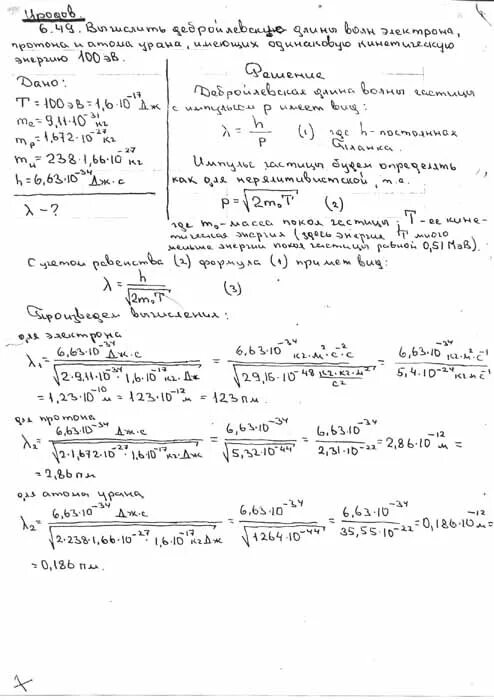 Иродов.
6.49. Вычислить дебройлевскую длины волн электрона,
протона и атома урана, имеющих одинаковую кинетическую
энергию 100 эВ.
Дано:
T = 100 эВ = 1,6·10⁻¹⁷ Дж
mₑ = 9,11·10⁻³¹ кг
mₚ = 1,672·10⁻²⁷ кг
mᵤ = 238·1,66·10⁻²⁷ кг
h = 6,63·10⁻³⁴ Дж·с
λ - ?
Решение
Дебройлевская длина волны частицы
с импульсом p имеет вид:
λ = h/p (1) где h - постоянная
Планка.
Импульс частицы будем определять
как для нерелятивистской, т.е.
p = √(2m₀T) (2)
где m₀ - масса покоя частицы; T - ее кине-
тическая энергия (здесь энергия T много
меньше энергии покоя частицы равной 0,51 МэВ).
С учетом равенства (2) формула (1) примет вид:
λ = h/√(2m₀T) (3)
Произведем вычисления:
для электрона
λ₁ = 6,63·10⁻³⁴ Дж·с / √(2·9,11·10⁻³¹·1,6·10⁻¹⁷ кг·Дж) = 6,63·10⁻³⁴ кг·м²·с⁻²·с / √(29,15·10⁻⁴⁸ кг·кг·м²/с²) = 6,63·10⁻³⁴ кг·м²·с⁻¹ / 5,4·10⁻²⁴ кг·м·с⁻¹
= 1,23·10⁻¹⁰ м = 123·10⁻¹² м = 123 пм.
для протона
λ₂ = 6,63·10⁻³⁴ Дж·с / √(2·1,672·10⁻²⁷·1,6·10⁻¹⁷ кг·Дж) = 6,63·10⁻³⁴ / √(5,32·10⁻⁴⁴) = 6,63·10⁻³⁴ / 2,31·10⁻²² = 2,86·10⁻¹² м =
= 2,86 пм
для атома урана
λ₂ = 6,63·10⁻³⁴ Дж·с / √(2·238·1,66·10⁻²⁷·1,6·10⁻¹⁷ кг Дж) = 6,63·10⁻³⁴ / √(1264·10⁻⁴⁴) = 6,63·10⁻³⁴ / 35,55·10⁻²² = 0,186·10⁻¹² м =
= 0,186 пм.